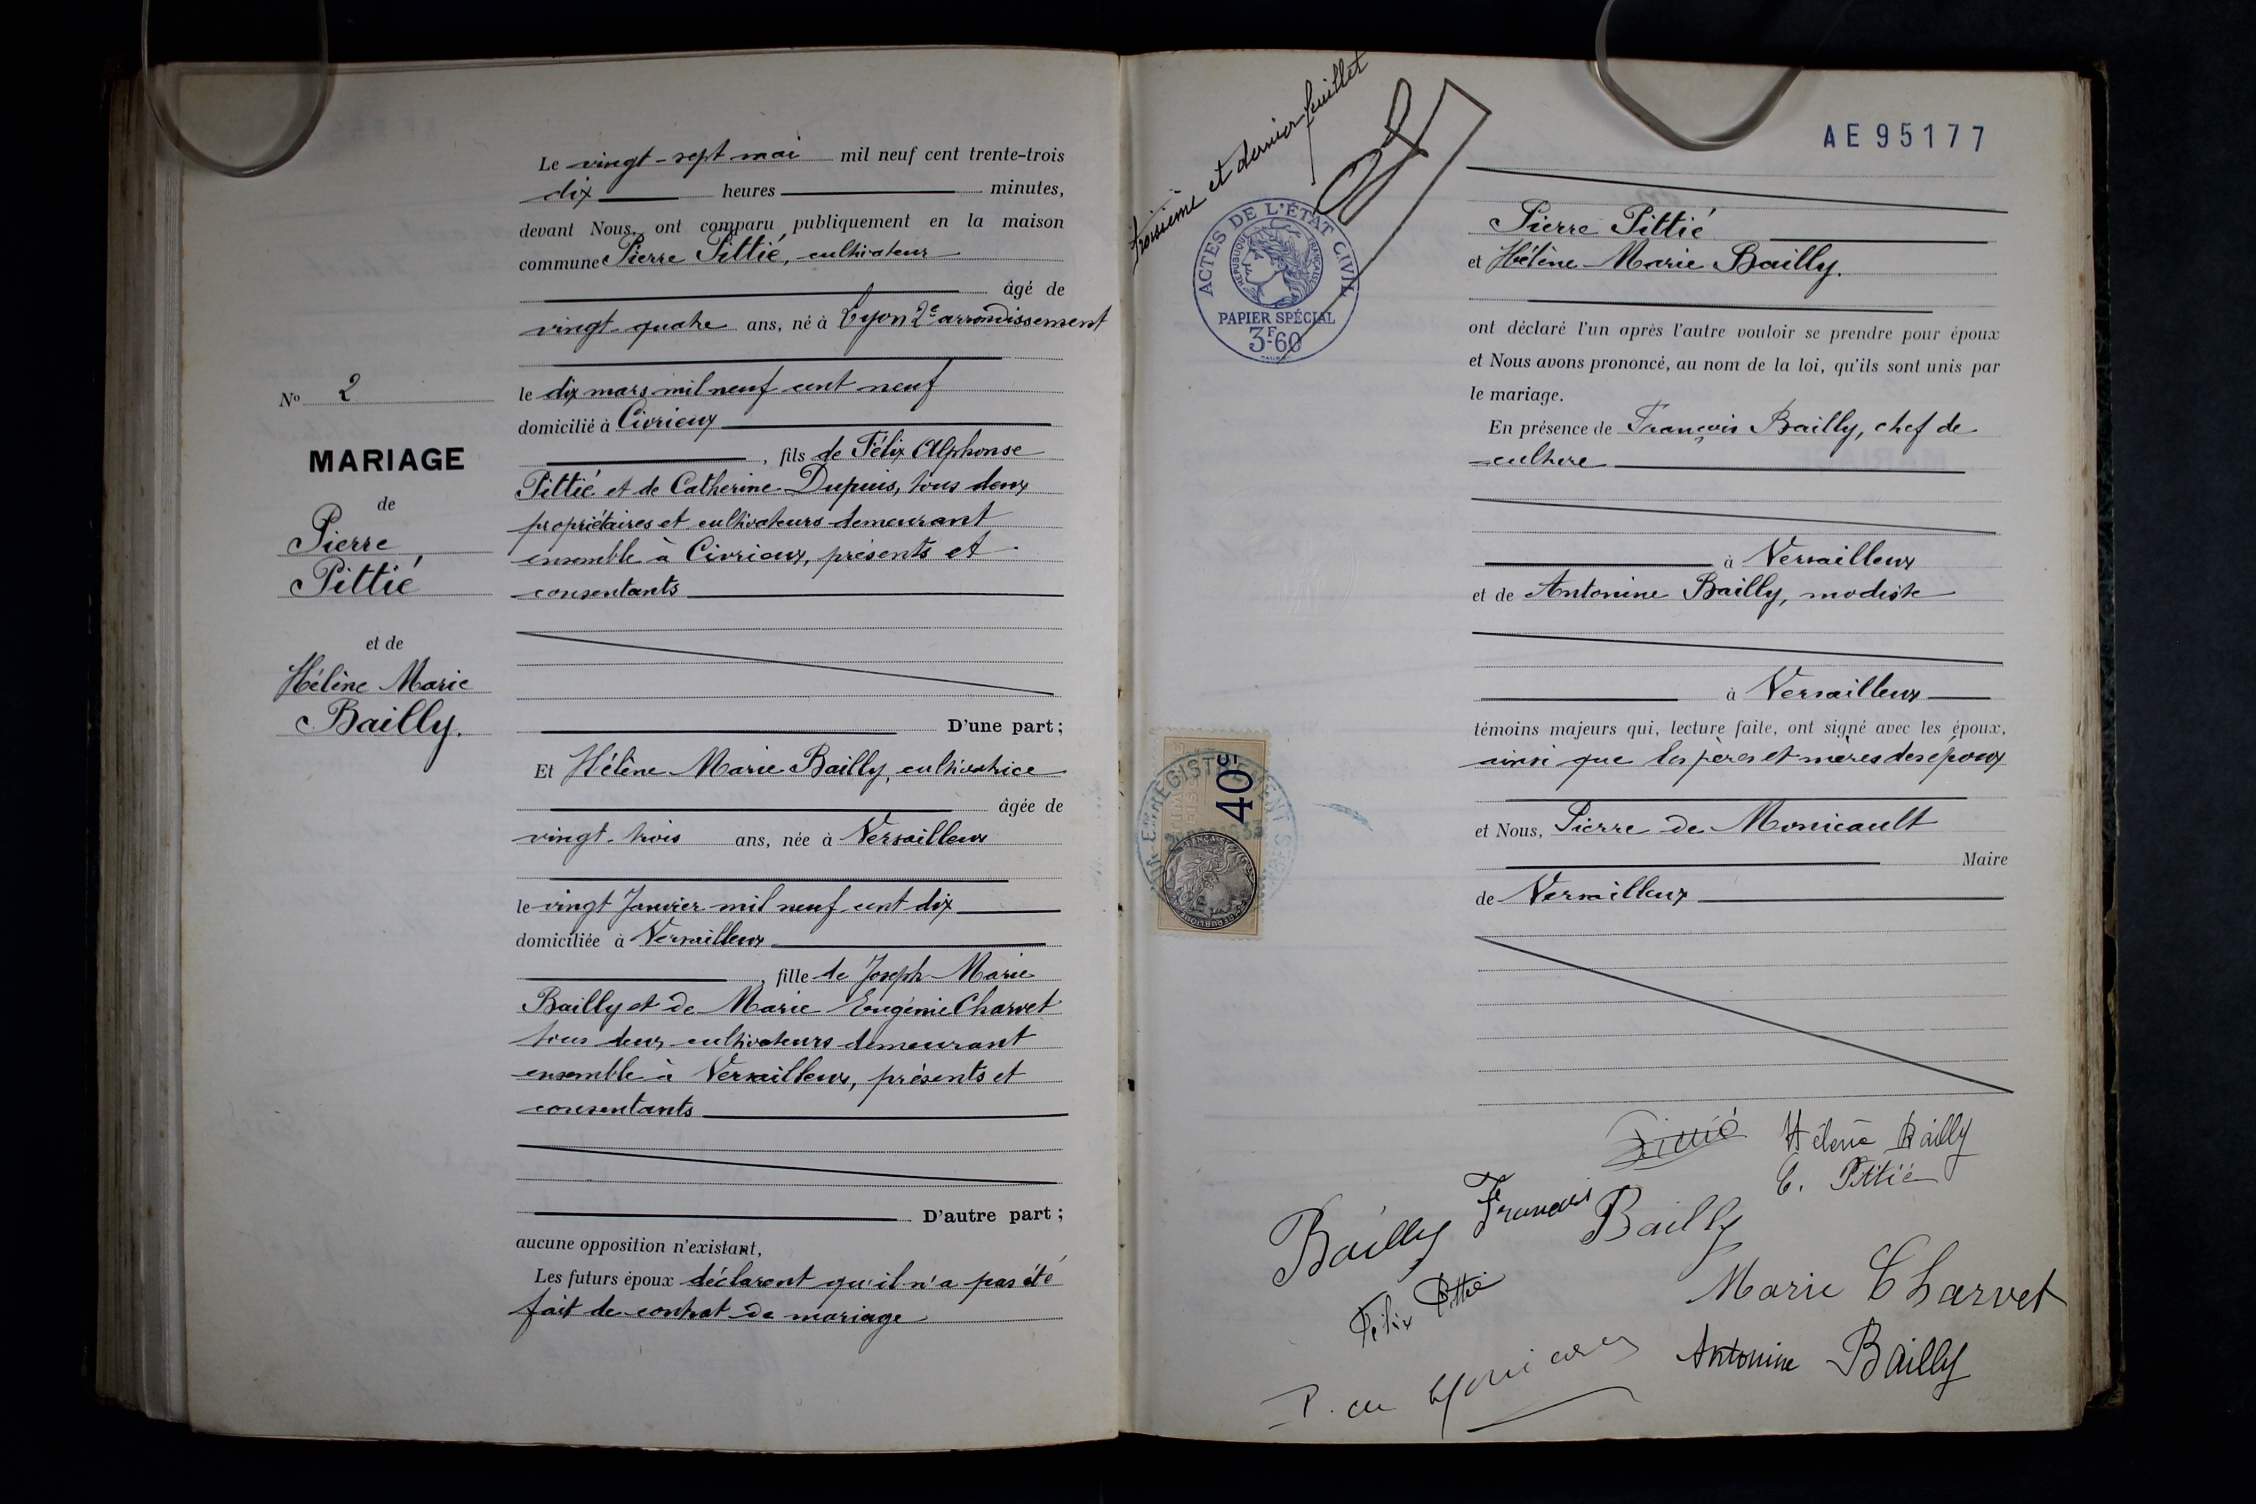 Le vingt-sept mai mil neuf cent trente-trois
dix heures minutes,
devant Nous, ont comparu publiquement en la maison
commune Pierre Pittié, cultivateur
âgé de
vingt-quatre ans, né à Lyon 2e arrondissement
le dix mars mil neuf cent neuf
domicilié à Civrieux
, fils de Félix Alphonse
Pittié et de Catherine Dupuis, tous deux
propriétaires et cultivateurs demeurant
ensemble à Civrieux, présents et
consentants
D'une part ;
Et Hélène Marie Bailly, cultivatrice
âgée de
vingt-trois ans, née à Versailleux
le vingt Janvier mil neuf cent dix
domiciliée à Versailleux
, fille de Joseph Marie
Bailly et de Marie Eugénie Charvet
tous deux cultivateurs demeurant
ensemble à Versailleux, présents et
consentants
D'autre part ;
aucune opposition n'existant,
Les futurs époux déclarent qu'il n'a pas été
fait de contrat de mariage
No 2
MARIAGE
de
Pierre
Pittié
et de
Hélène Marie
Bailly.
Troisième et dernier feuillet
ACTES DE L'ÉTAT CIVIL
RÉPUBLIQUE FRANÇAISE
PAPIER SPÉCIAL
3F60
40c
AE 95177
Pierre Pittié
et Hélène Marie Bailly.
ont déclaré l'un après l'autre vouloir se prendre pour époux
et Nous avons prononcé, au nom de la loi, qu'ils sont unis par
le mariage.
En présence de François Bailly, chef de
culture
à Versailleux
et de Antonine Bailly, modiste
à Versailleux
témoins majeurs qui, lecture faite, ont signé avec les époux,
ainsi que les pères et mères des époux
et Nous, Pierre de Monicault
Maire
de Versailleux
Pittié Hélène Bailly
C. Pittié
Bailly François Bailly
Félix Pittié Marie Charvet
P. de Monicault Antonine Bailly